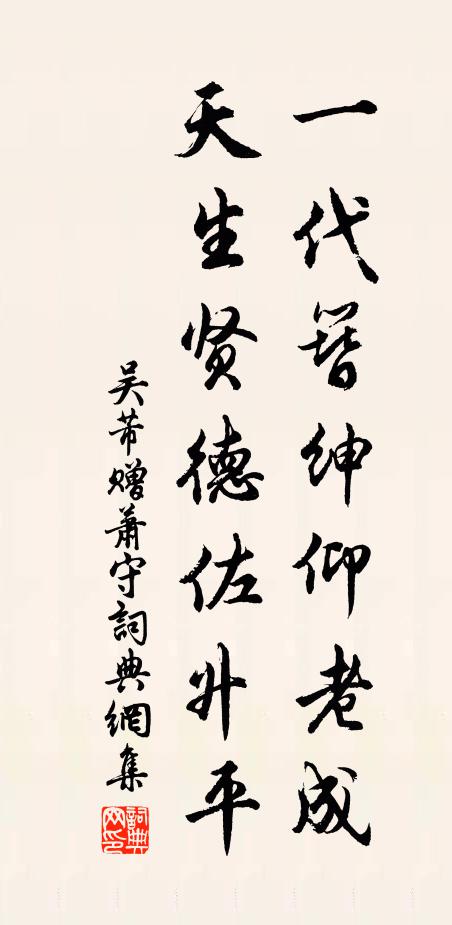 一代簪绅仰老成
天生贤德佐升平
吴芾赠萧守詞典網集
詞典